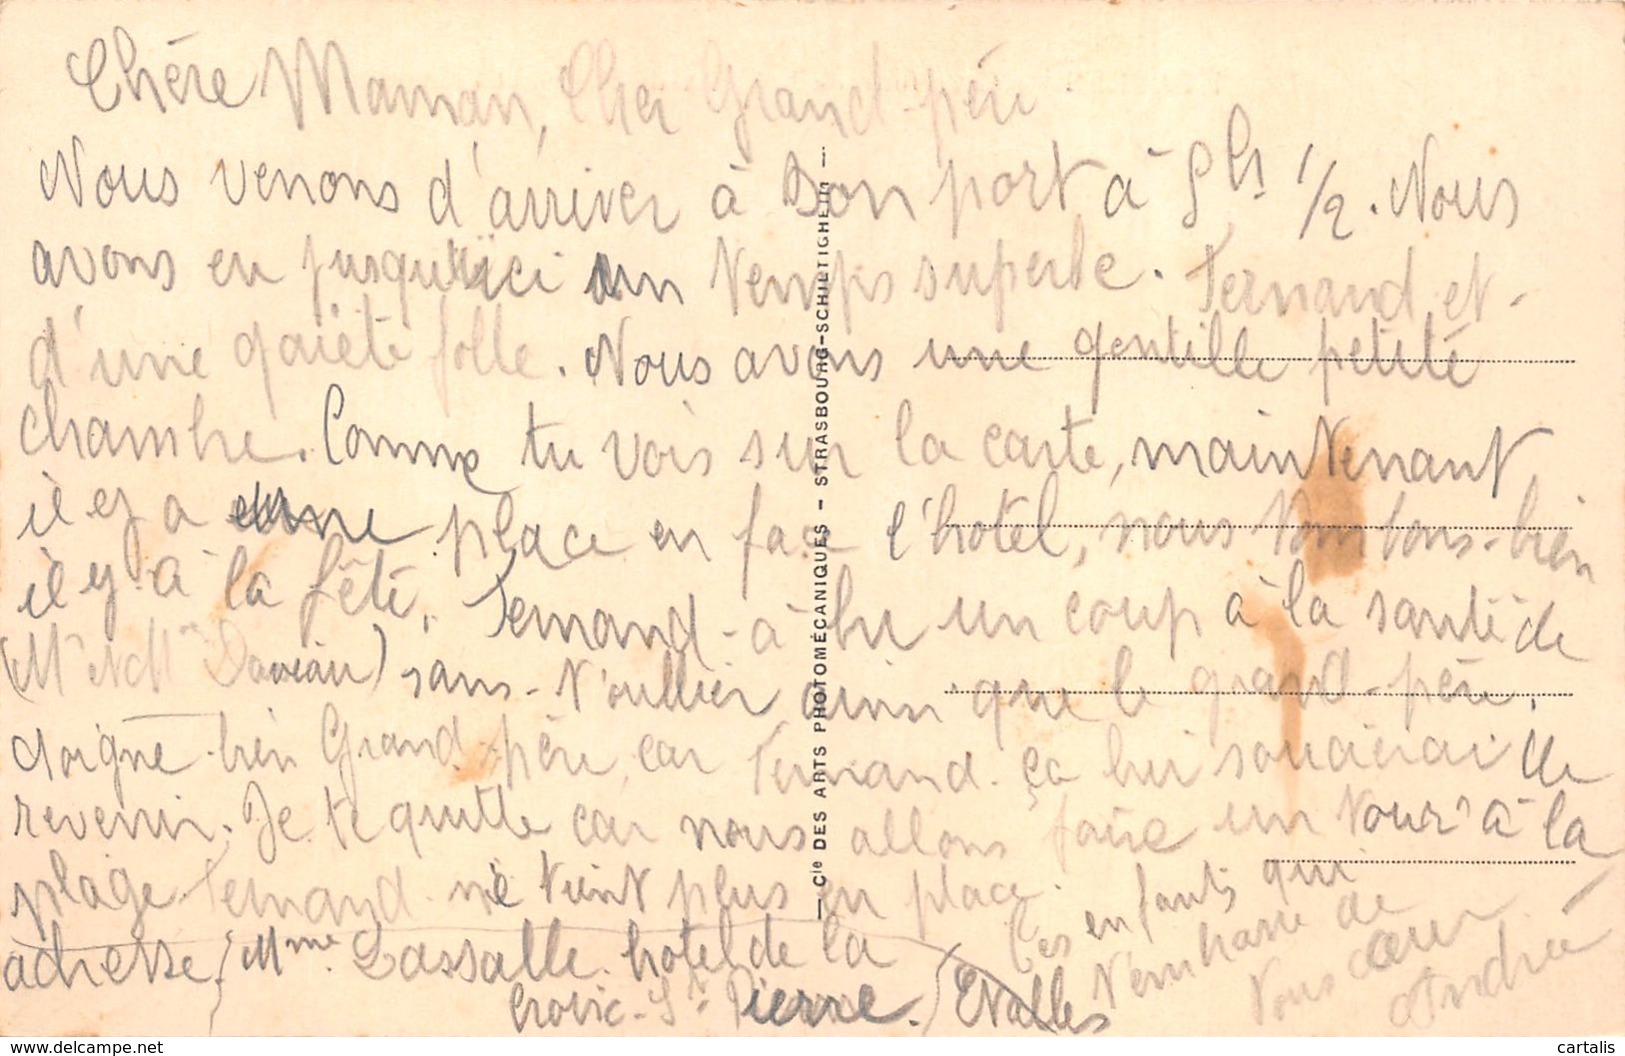 Chère Maman, Cher Grand-père
Nous venons d'arriver à bon port à 5hs 1/2. Nous
avons eu jusqu'ici un temps superbe. Fernand et-
d'une gaieté folle. Nous avons une gentille petite
chambre. Comme tu vois sur la carte, maintenant
il y a une place en face l'hotel, nous tombons-bien
il y à la fête. Fernand-à bu un coup à la santé de
(Mr et Mme Daveau) sans-t'oublier ainsi que le grand-père.
soigne-bien Grand-père, car Fernand ça lui de
revenir. Je te quitte car nous allons faire un tour à la
plage Fernand ne tient plus en place.
adresse. Mme Lassalle hotel de la
Croix-St Pierre.
Tes enfants qui
t'embrasse de
tous coeur
Andrée
Cie DES ARTS PHOTOMÉCANIQUES - STRASBOURG-SCHILTIGHEIM
www.delcampe.net
cartalis